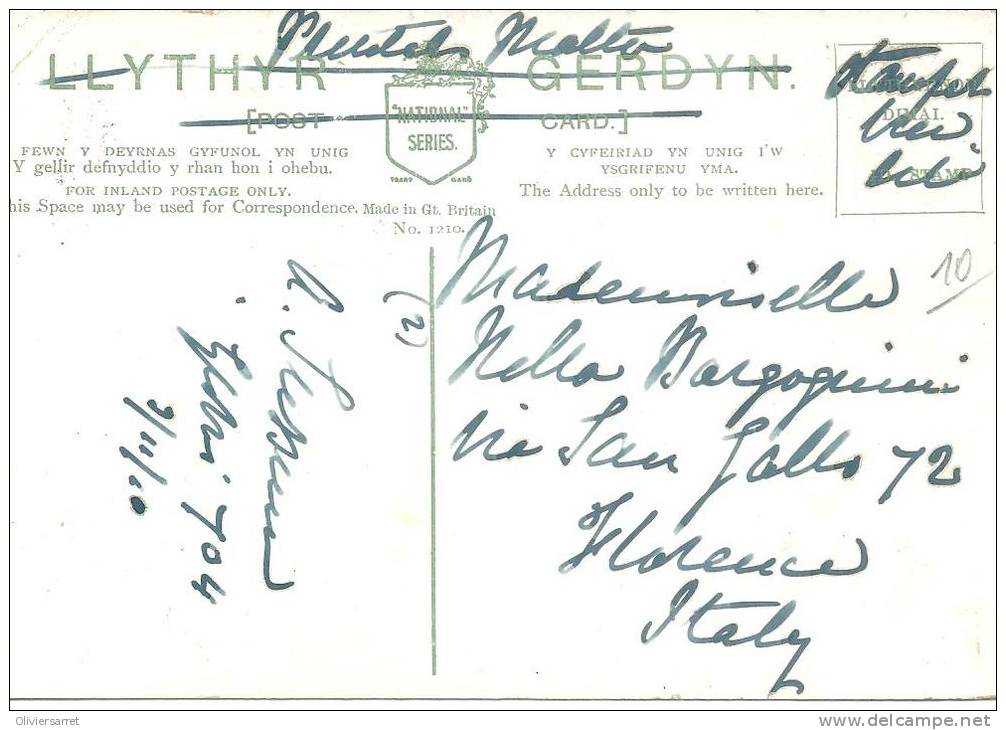 Malta
LLYTHYR GERDYN.
[POST CARD.]
"NATIONAL"
SERIES.
TRADE MARK
FEWN Y DEYRNAS GYFUNOL YN UNIG
Y gellir defnyddio y rhan hon i ohebu.
FOR INLAND POSTAGE ONLY.
his Space may be used for Correspondence.
Made in Gt. Britain
No. 1210.
Y CYFEIRIAD YN UNIG I'W
YSGRIFENU YMA.
The Address only to be written here.
STAMP
10
(2)
704
9/11/10
Mademoiselle
Nella Bargognini
via San Gallo 72
Florence
Italy
Oliviersarret
delcampe.net